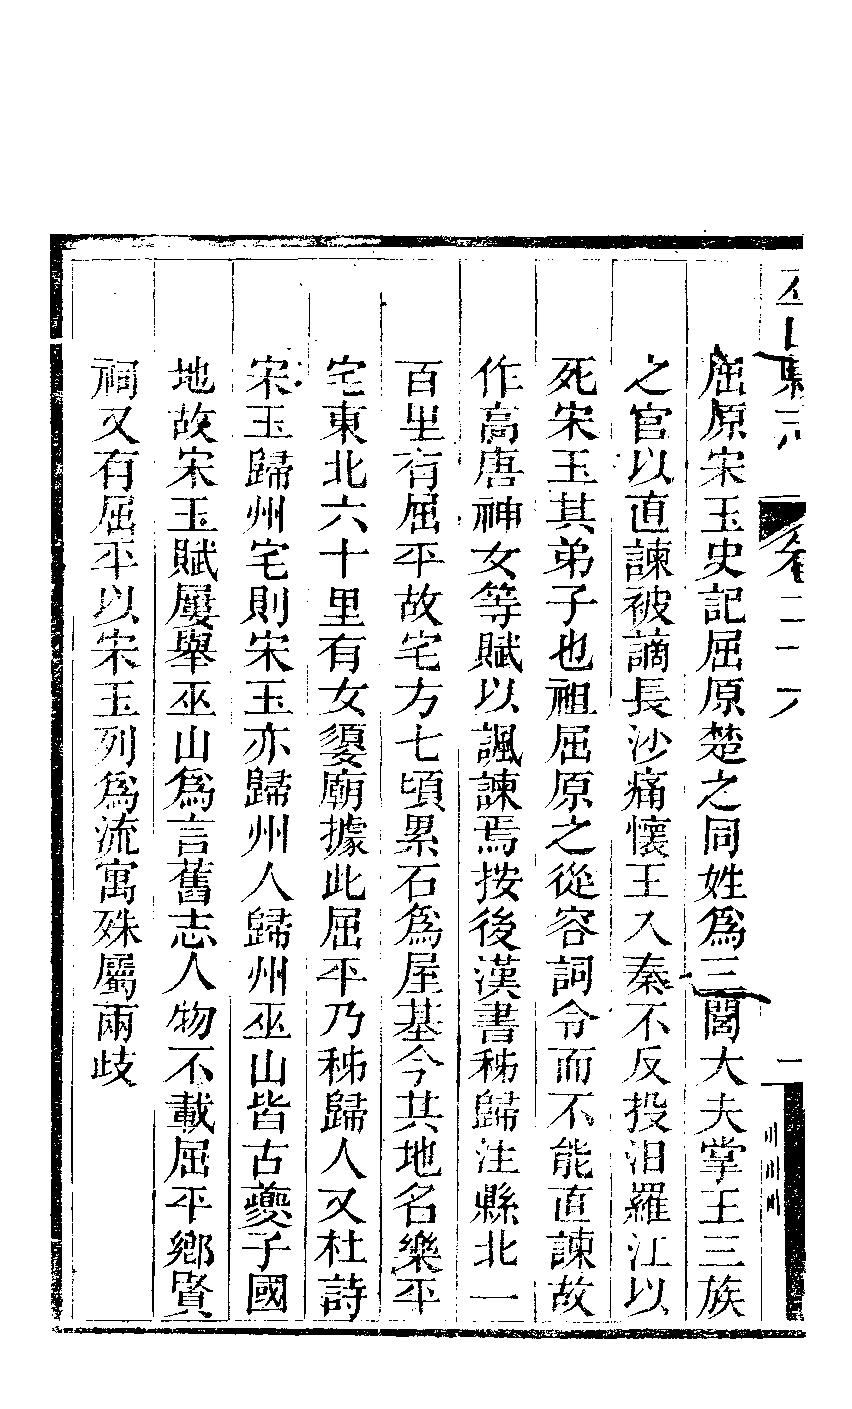 屈原宋玉史記屈原楚之同姓爲三閭大夫掌王三族
之官以直諫被謫長沙痛懷王入秦不反投汨羅江以
死宋玉其弟子也祖屈原之從容詞令而不能直諫故
作高唐神女等賦以諷諫焉按後漢書秭歸注縣北一
百里有屈平故宅方七頃累石爲屋基今其地名樂平
宅東北六十里有女嬃廟據此屈平乃秭歸人又杜詩
宋玉歸州宅則宋玉亦歸州人歸州巫山皆古夔子國
地故宋玉賦屢舉巫山爲言舊志人物不載屈平鄉賢
祠又有屈平以宋玉列爲流寓殊屬兩歧